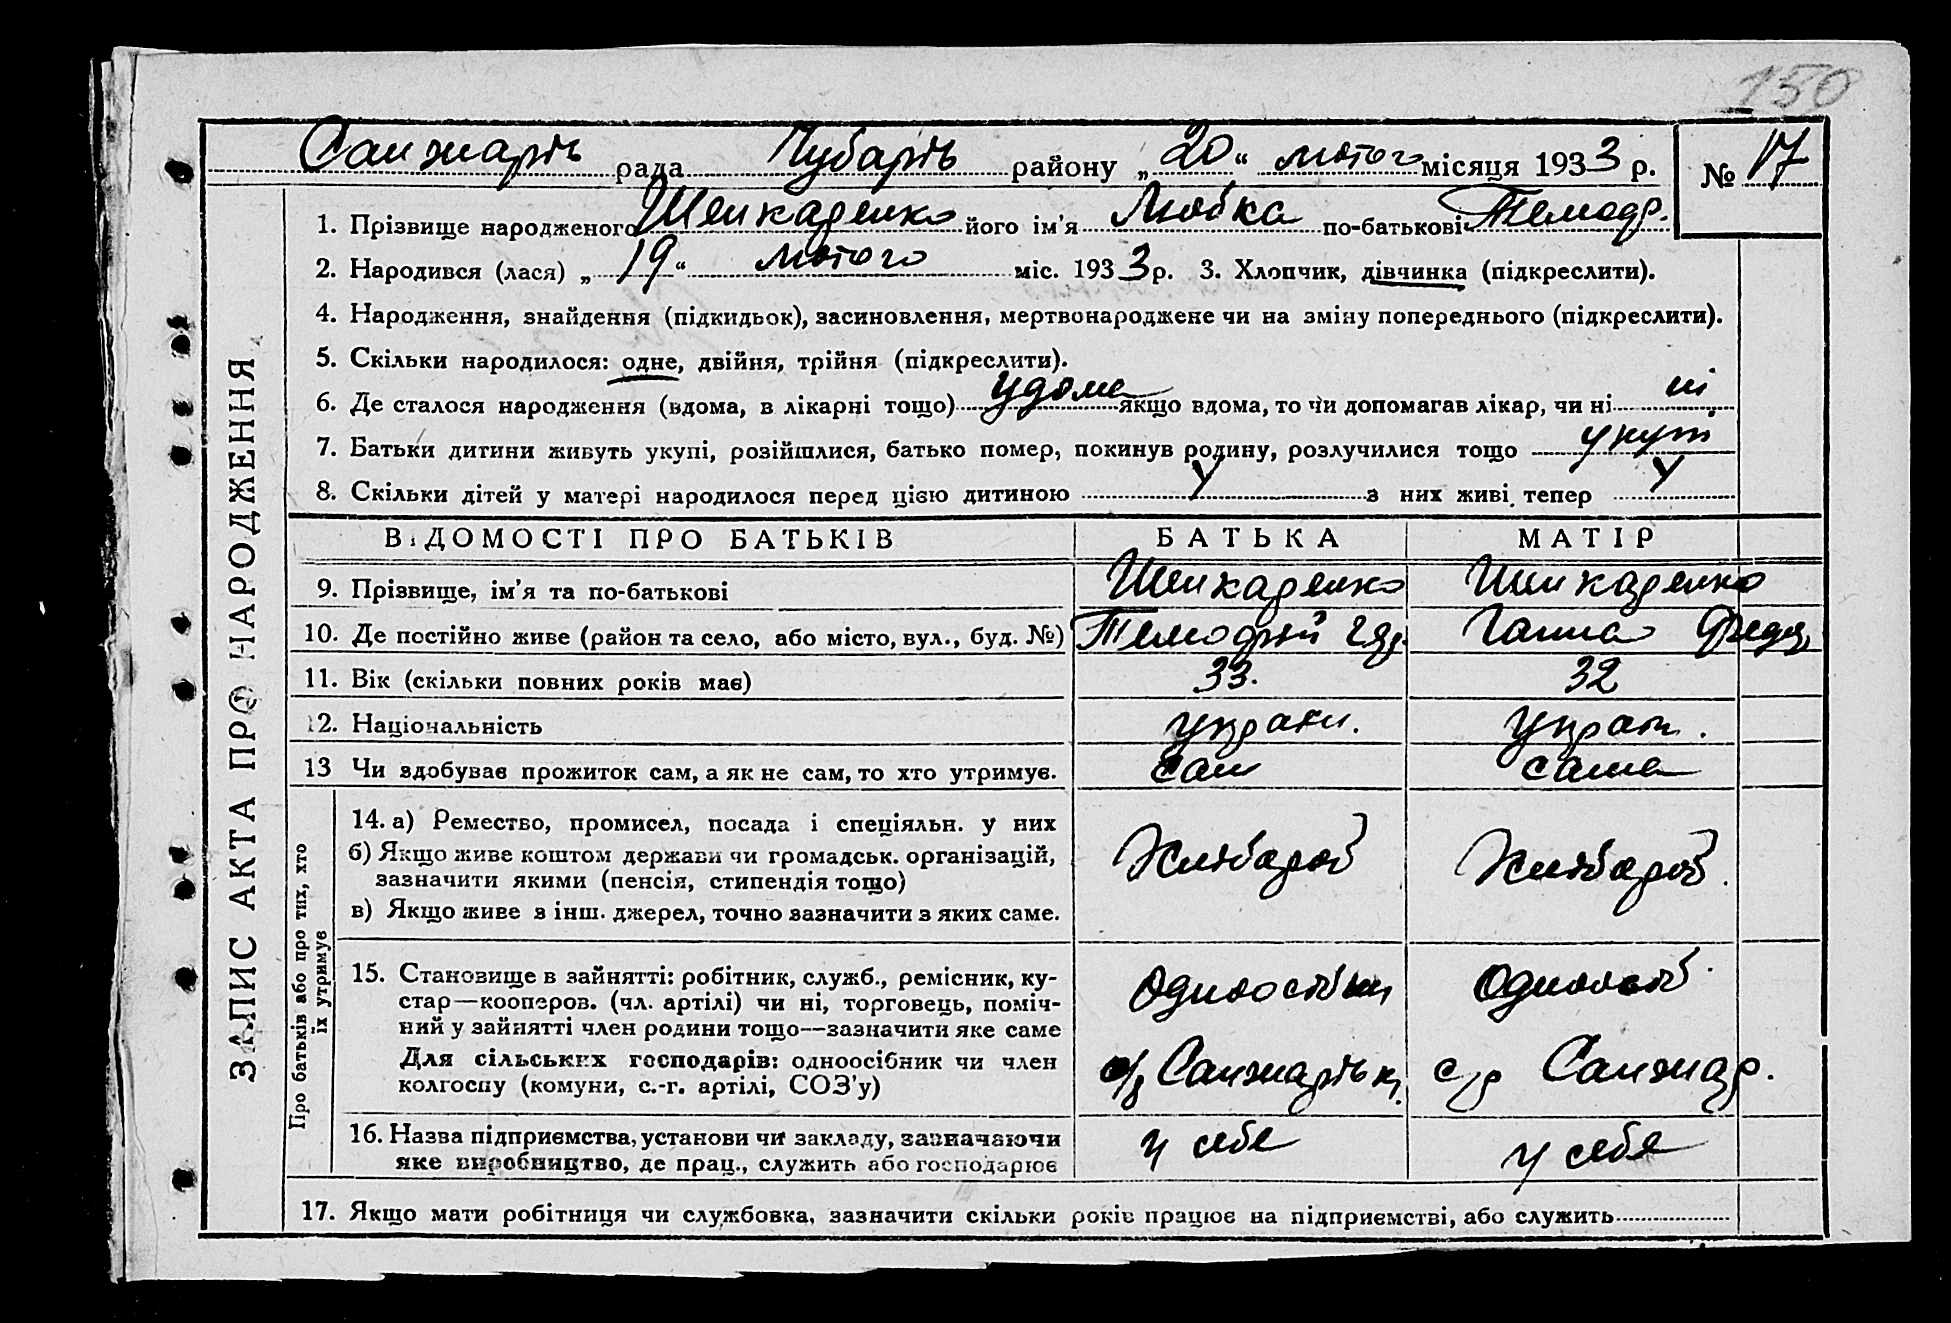 150
Санжарів рада Чубарів району „20“ лютого місяця 1933 р. № 17
ЗАПИС АКТА ПРО НАРОДЖЕННЯ
1. Прізвище народженого Шепкаренко його ім’я Любка по-батькові
2. Народився (лася) „19“ лютого міс. 1933 р. 3. Хлопчик, дівчинка (підкреслити).
4. Народження, знайдення (підкидьок), засиновлення, мертвонароджене чи на зміну попереднього (підкреслити).
5. Скільки народилося: одне, двійня, трійня (підкреслити).
6. Де сталося народження (вдома, в лікарні тощо) удома якщо вдома, то чи допомагав лікар, чи ні ні
7. Батьки дитини живуть укупі, розійшлися, батько помер, покинув родину, розлучилися тощо укупі
8. Скільки дітей у матері народилося перед цією дитиною 4 з них живі тепер 4
ВІДОМОСТІ ПРО БАТЬКІВ БАТЬКА МАТІР
9. Прізвище, ім’я та по-батькові Шепкаренко Шепкаренко
10. Де постійно живе (район та село, або місто, вул., буд. №) Ганна Федор
11. Вік (скільки повних років має) 33. 32
12. Національність україн. україн.
13 Чи здобуває прожиток сам, а як не сам, то хто утримує. сам сама
Про батьків або про тих, хто їх утримує
14. а) Ремество, промисел, посада і спеціяльн. у них
б) Якщо живе коштом держави чи громадськ. організацій,
зазначити якими (пенсія, стипендія тощо)
в) Якщо живе з інш. джерел, точно зазначити з яких саме.
Хлібороб Хлібороб
15. Становище в зайнятті: робітник, служб., ремісник, ку-
стар—коопероВ. (чл. артілі) чи ні, торговець, поміч-
ний у зайнятті член родини тощо—зазначити яке саме
Для сільських господарів: одноосібник чи член
колгоспу (комуни, с.-г. артілі, СОЗ’у)
одноосібник одноосіб
с/р Санжарівк. с/р Санжар.
16. Назва підприємства, установи чи закладу, зазначаючи
яке виробництво, де прац., служить або господарює
у себе у себе
17. Якщо мати робітниця чи службовка, зазначити скільки років працює на підприємстві, або служить